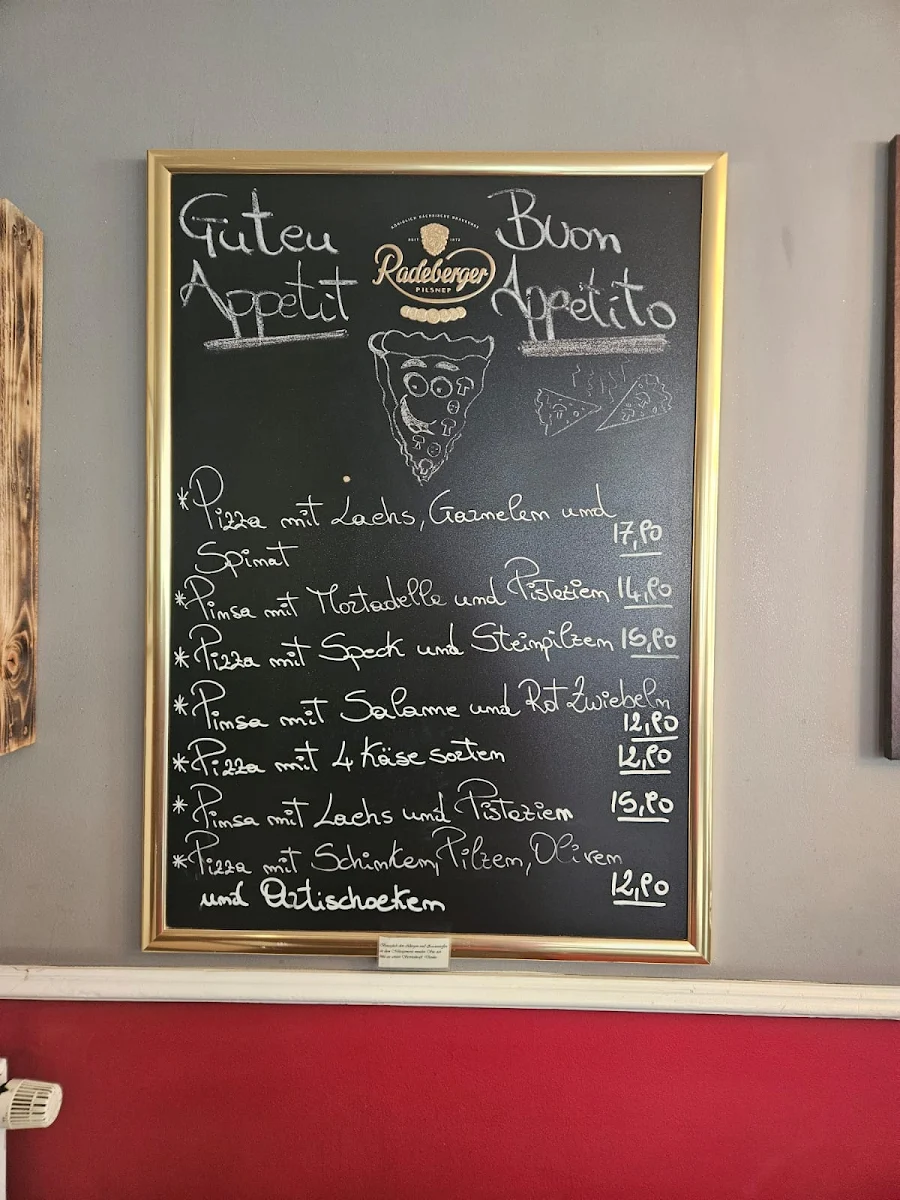 Guten
Appetit
KÖNIGLICH SÄCHSISCHE HOFBRAUEREI
SEIT 1872
Radeberger
PILSNER
Buon
Appetito
*Pizza mit Lachs, Garnelen und
17,90
Spinat
*Pinsa mit Mortadella und Pistazien 14,90
*Pizza mit Speck und Steinpilzen 15,90
*Pinsa mit Salame und Rot Zwiebeln
12,90
*Pizza mit 4 Käse sorten 12,90
*Pinsa mit Lachs und Pistazien 15,90
*Pizza mit Schinken, Pilzen, Oliven
und Artischocken 12,90